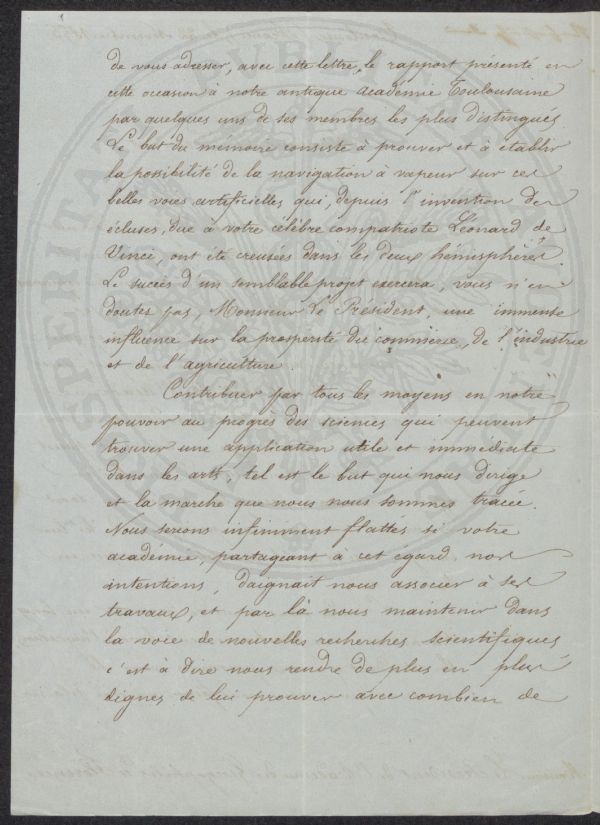 de vous adresser, avec cette lettre, le rapport présenté en
cette occasion à notre antique académie Toulousaine
par quelques uns de ses membres les plus distingués
Le but du mémoire consiste à prouver et à établir
la possibilité de la navigation à vapeur sur ces
belles voies artificielles qui, depuis l'invention des
écluses, due à votre célèbre compatriote Léonard de
Vinci, ont été creusées dans les deux hémisphères.
Le succès d'un semblable projet exercera, vous n'en
doutez pas, Monsieur le Président, une immense
influence sur la prospérité du commerce, de l'industrie
et de l'agriculture.
Contribuer par tous les moyens en notre
pouvoir au progrès des sciences qui peuvent
trouver une application utile et immédiate
dans les arts, tel est le but qui nous dirige
et la marche que nous nous sommes tracée.
Nous serions infiniment flattés si votre
académie, partageant à cet égard nos
intentions, daignait nous associer à ses
travaux, et par là nous maintenir dans
la voie de nouvelles recherches scientifiques
c'est à dire nous rendre de plus en plus
dignes de lui prouver avec combien de